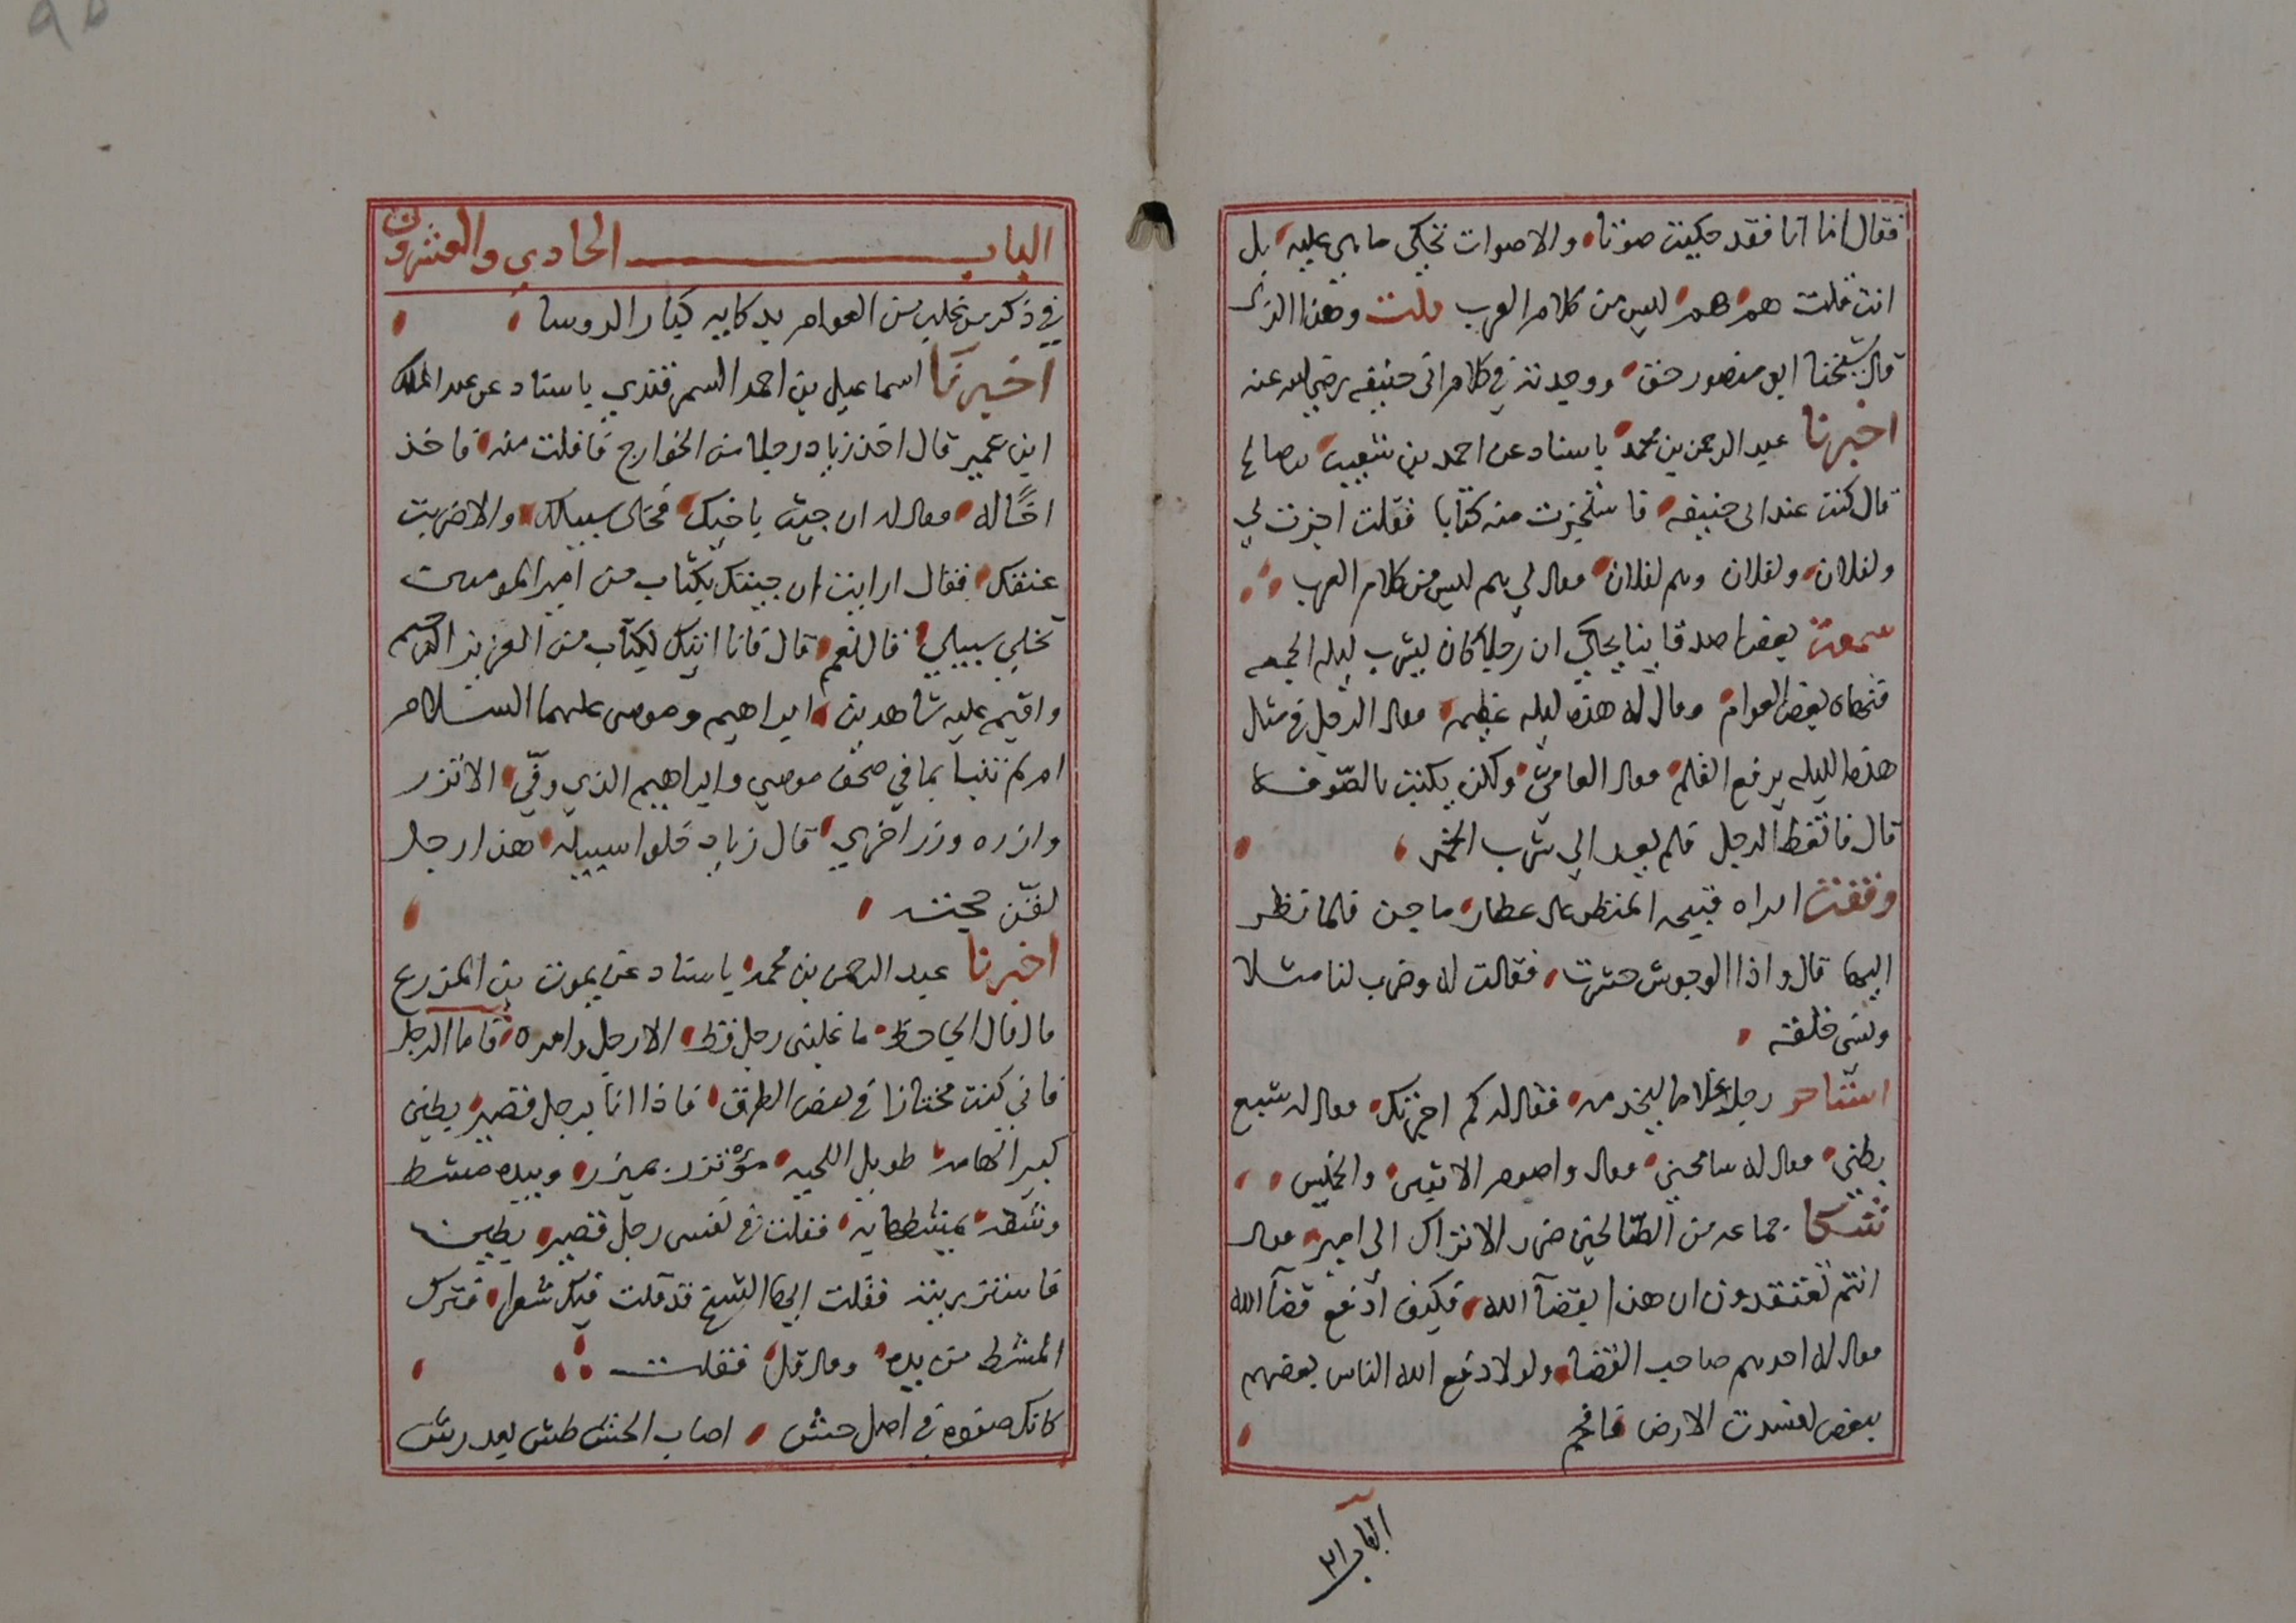 فقال اما انا فقد حكيت صوتا والاصوات تحكى ما هى عليه بل
انت قلت هم هم ليس من كلام العرب قلت وهذا الذى
قال شيخنا ابو منصور حق ووجدته في كلام ابى حنيفه رضي الله عنه
اخبرنا عبد الرحمن بن محمد باسناد عن احمد بن شعيب بن صالح
قال كنت عند ابى حنيفه فاستجزت منه كتابا فقلت اجزت لي
ولفلان ولفلان وهم لفلان فقال لي هم ليس من كلام العرب
سمعت بعض اصدقاينا يحكي ان رجلا كان يشرب ليله الجمعه
فنهاه بعض العوام وقال له هذه ليله عظيمه فقال الرجل في مثل
هذه الليله يرفع القلم فقال العامى ولكن يكتب بالصوفه
قال فاتعظ الرجل فلم يعد الي شرب الخمر
وقفت امراه قبيحه المنظر على عطار ماجن فلما نظر
اليها قال واذا الوحوش حشرت فقالت له وضرب لنا مثلا
ونسى خلقه
استاجر رجل غلاما ليخدمه فقال له كم اجرتك فقال له شبع
بطنى فقال له سامحنى فقال واصوم الاثنين والخميس
شكا جماعه من الطحانين ضرر الاتراك الى امير فقال
انتم تعتقدون ان هذا بقضآ الله فكيف ادفع قضآ الله
فقال له احدهم صاحب القضا ولولا دفع الله الناس بعضهم
ببعض لفسدت الارض فافحم
الباب ٢١
الباب الحادي والعشرون
في ذكر من غلب من العوام بذكايه كبار الروسا
اخبرنا اسماعيل بن احمد السمرقندي باسناد عن عبد الملك
ابن عمير قال اخذ زياد رجلا من الخوارج فافلت منه فاخذ
اخًا له فقال له ان جيت باخيك فخلى سبيلك والا ضربت
عنقك فقال ارايت ان جيتك بكتاب من امير المومنين
تخلي سبيلي قال نعم قال فانا اتيك بكتاب من العزيز الحكيم
واقيم عليه شاهدين ابراهيم وموسى عليهما السلام
ام لم ينبا بما في صحف موسي وابراهيم الذي وفّي الا تزر
وازره وزر اخري قال زياد خلوا سبيله هذا رجل
لقّن حجته
اخبرنا عبد الرحمن بن محمد باسناد عن يموت بن المزرع
قال قال الجاحظ ما غلبنى رجل قط الا رجل وامره فاما الرجل
فاني كنت مجتازا في بعض الطرق فاذا انا برجل قصير بطين
كبير الهامه طويل اللحيه مؤتزر بميزر وبيده مشط
وشقه يمشطها به فقلت في نفسى رجل قصير بطين
فاستزريته فقلت ايها الشيخ قد قلت فيك شعرا فترك
المشط من يده وقال قل فقلت
كانك صعوه في اصل حش اصاب الحش طش بعد رش